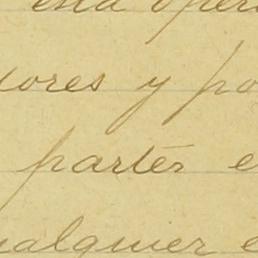 esta oper
dores y po
partes e
ualquier e